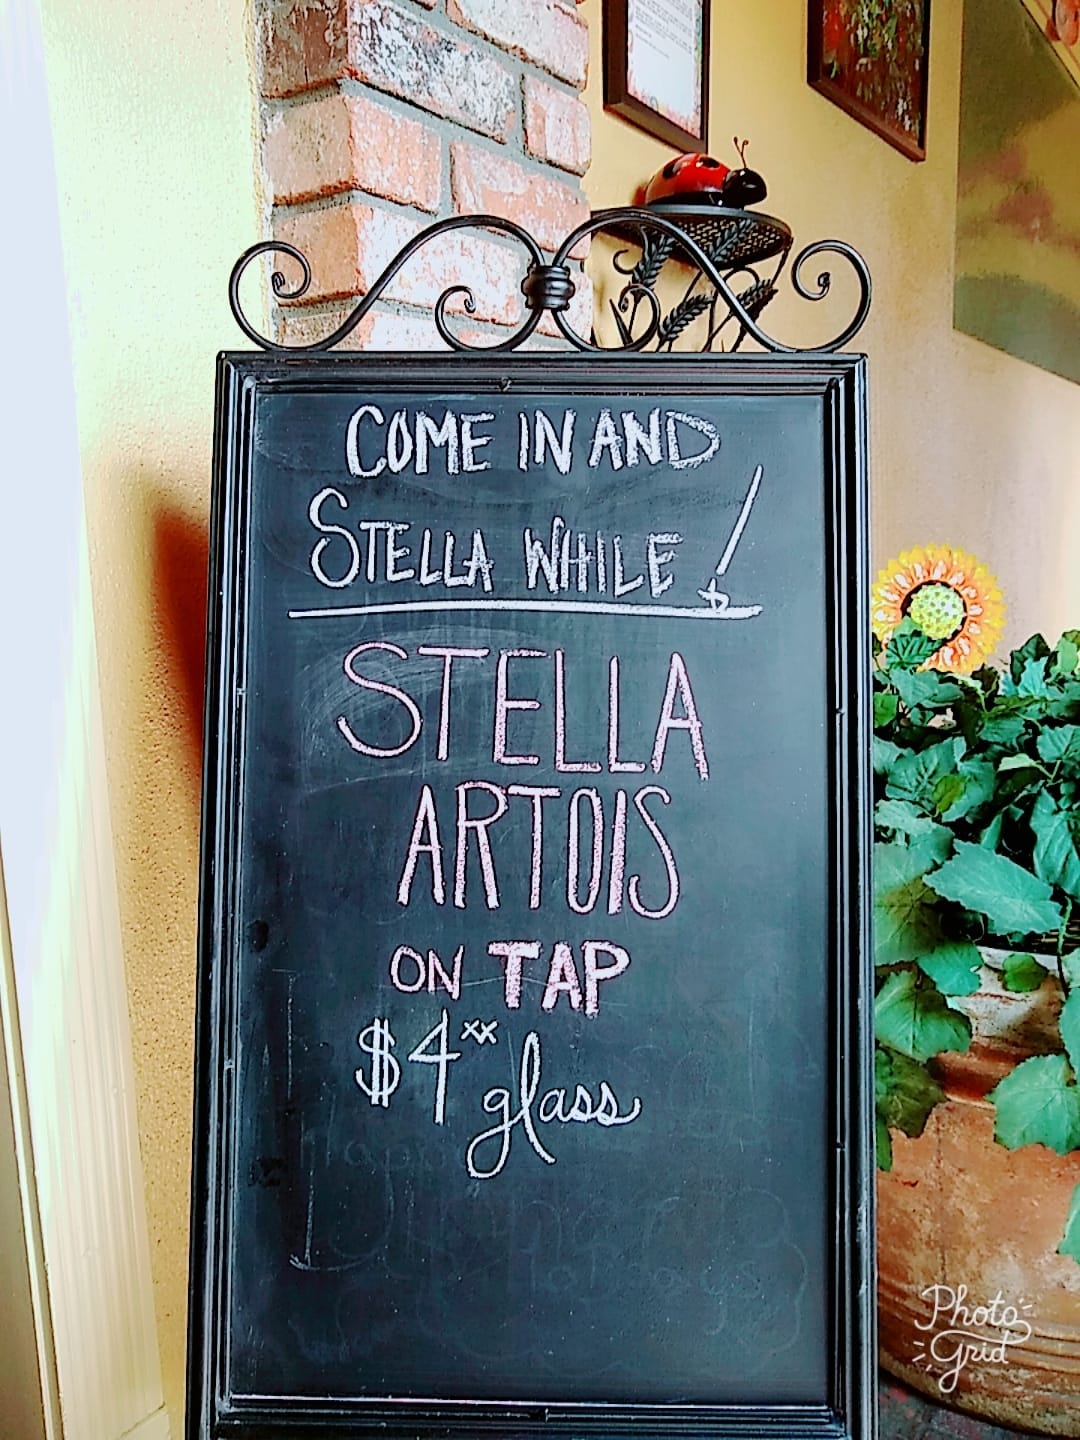 COME IN AND
STELLA WHILE!
STELLA
ARTOIS
ON TAP
$4xx glass
Photo
Grid